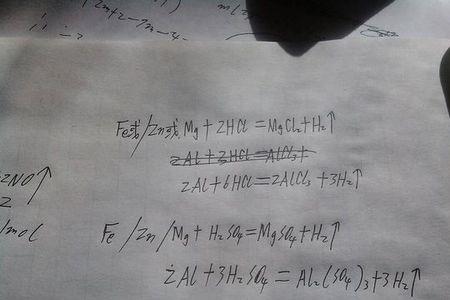 Fe或/Zn或Mg+2HCl=MgCl₂+H₂↑
2Al+6HCl=2AlCl₃+3H₂↑
2NO↑
/mol
Fe/Zn/Mg+H₂SO₄=MgSO₄+H₂↑
2Al+3H₂SO₄=Al₂(SO₄)₃+3H₂↑